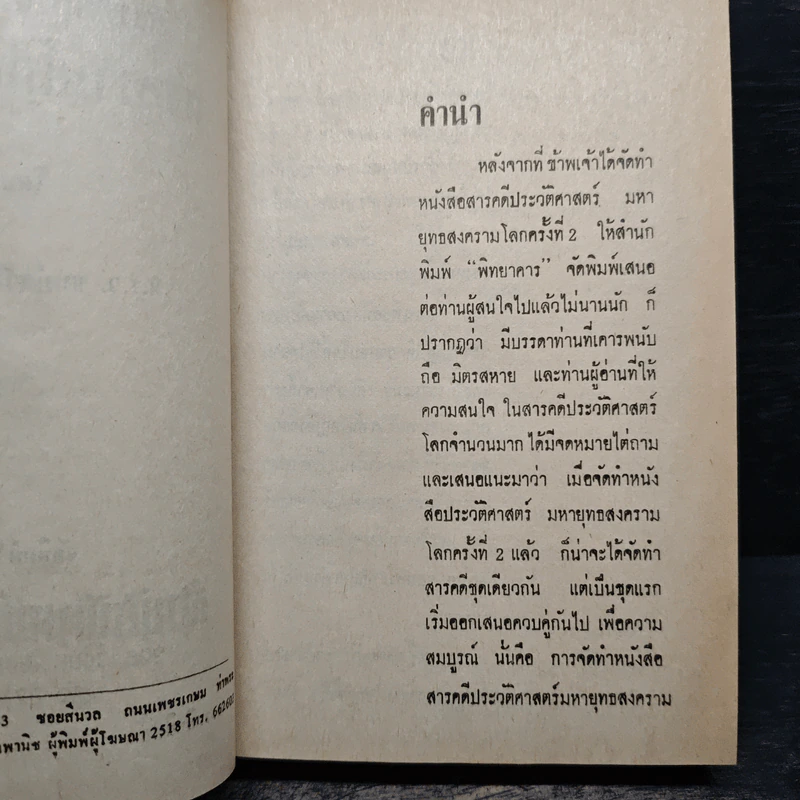 3 ซอยสีนวล ถนนเพชรเกษม
พานิช ผู้พิมพ์ผู้โฆษณา 2518 โทร.
คำนำ
หลังจากที่ ข้าพเจ้าได้จัดทำ
หนังสือสารคดีประวัติศาสตร์ มหา
ยุทธสงครามโลกครั้งที่ 2 ให้สำนัก
พิมพ์ “พิทยาคาร” จัดพิมพ์เสนอ
ต่อท่านผู้สนใจไปแล้วไม่นานนัก ก็
ปรากฏว่า มีบรรดาท่านที่เคารพนับ
ถือ มิตรสหาย และท่านผู้อ่านที่ให้
ความสนใจ ในสารคดีประวัติศาสตร์
โลกจำนวนมาก ได้มีจดหมายไต่ถาม
และเสนอแนะมาว่า เมื่อจัดทำหนัง
สือประวัติศาสตร์ มหายุทธสงคราม
โลกครั้งที่ 2 แล้ว ก็น่าจะได้จัดทำ
สารคดีชุดเดียวกัน แต่เป็นชุดแรก
เริ่มออกเสนอควบคู่กันไป เพื่อความ
สมบูรณ์ นั่นคือ การจัดทำหนังสือ
สารคดีประวัติศาสตร์มหายุทธสงคราม